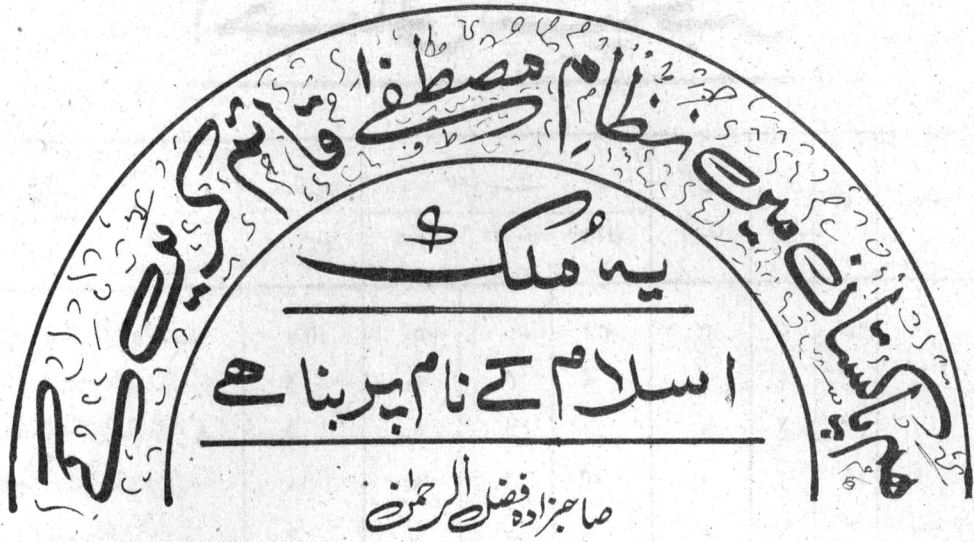 ہم پاکستان میں نظامِ مصطفےٰ قائم کریں گے
یہ مُلک
اسلام کے نام پر بنا ھے
صاحبزادہ فضل الرحمٰن